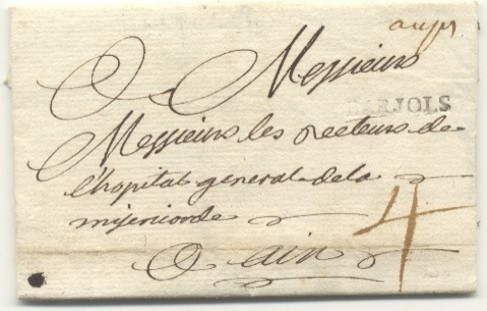 aups
A Messieurs
BARJOLS
Messieurs les recteurs de
l'hopital general de la
misericorde
4
A aix